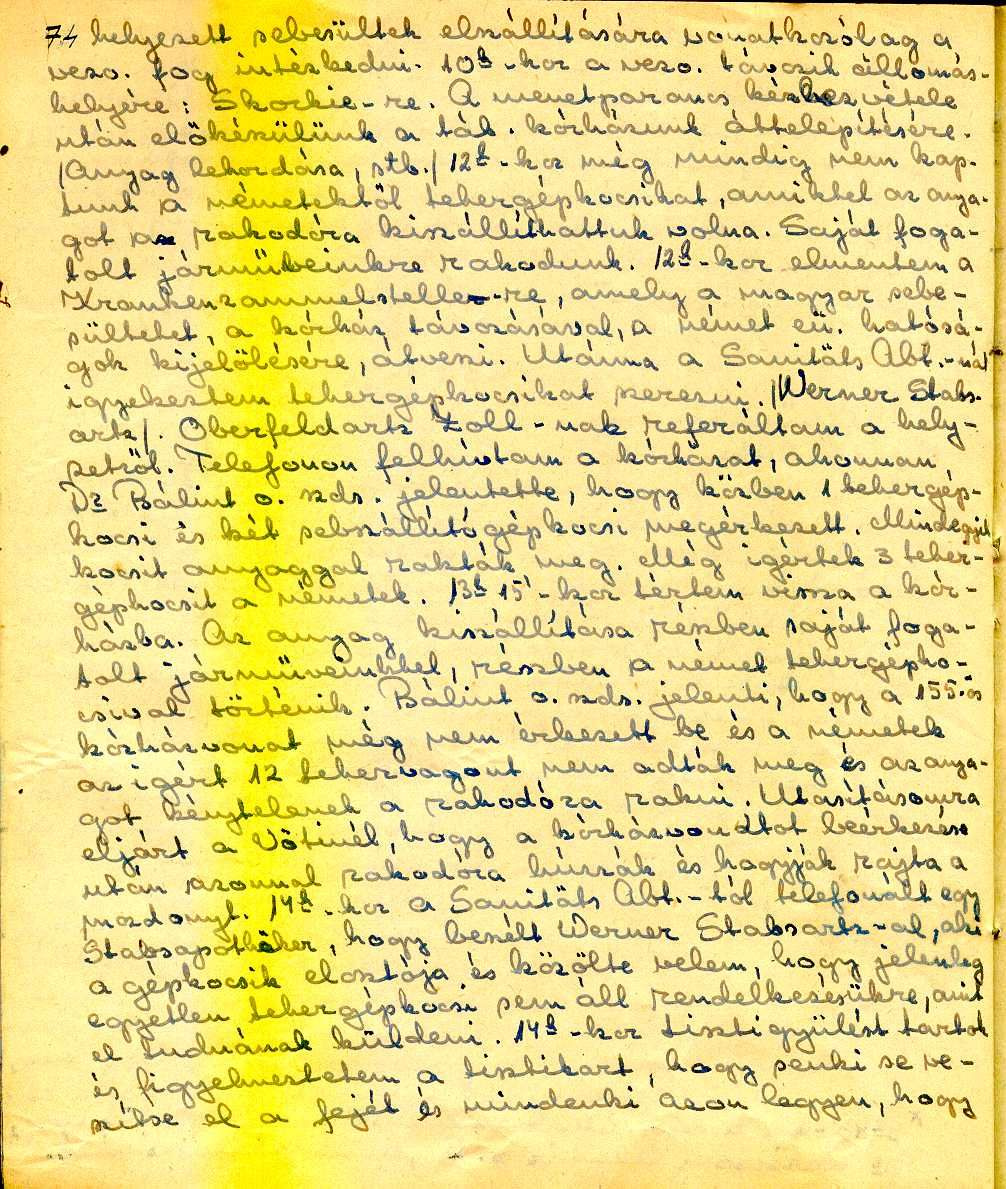 74 helyezett sebesültek elszállítására vonatkozólag a
vezo. fog intézkedni. 10h-kor a vezo. távozik állomás-
helyére: Skockie-re. A menetparancs kézhezvétele
után előkészülünk a táb. kórházunk áttelepítésére.
/Anyag lehordása, stb./ 12h-kor még mindig nem kap-
tunk a németektől tehergépkocsikat, amikkel az anya-
got a rakodóra kiszállíthattuk volna. Saját foga-
tolt járműveinkre rakodunk. 12h-kor elmentem a
Krankenzammelstelle-re, amely a magyar sebe-
sülteket, a kórház távozásával, a német eü. hatósá-
gok kijelölésére, átveszi. Utánna a Sanitäts Abt.-nál
igyekeztem tehergépkocsikat szerezni. /Werner Stabs-
artz/. Oberfeldartz Zoll-nak referáltam a hely-
zetről. Telefonon felhívtam a kórházat, ahonnan
Dr Bálint o. szds. jelentette, hogy közben 1 tehergép-
kocsi és két sebszállítógépkocsi megérkezett. Mindegyik
kocsit anyaggal rakták meg. Még igértek 3 teher-
gépkocsit a németek. 13h 15'-kor tértem vissza a kór-
házba. Az anyag kiszállítása részben saját foga-
tolt járműveinkkel, részben a német tehergépko-
csival történik. Bálint o. szds. jelenti, hogy a 155.-ös
kórházvonat még nem érkezett be és a németek
az igért 12 tehervagont nem adták meg és az anya-
got kénytelenek a rakodóra rakni. Utasításomra
eljárt a Vötinél, hogy a kórházvonatot beérkezése
után azonnal rakodóra húzzák és hagyják rajta a
mozdonyt. 14h-kor a Sanitäts Abt.-tól telefonált egy
Stabsapotheker, hogy beszélt Werner Stabsartz-al, aki
a gépkocsik elosztója és közölte velem, hogy jelenleg
egyetlen tehergépkocsi sem áll rendelkezésükre, amit
el tudnának küldeni. 14h-kor tisztigyülést tartok
és figyelmeztetem a tisztikart, hogy senki se ve-
szítse el a fejét és mindenki azon legyen, hogy